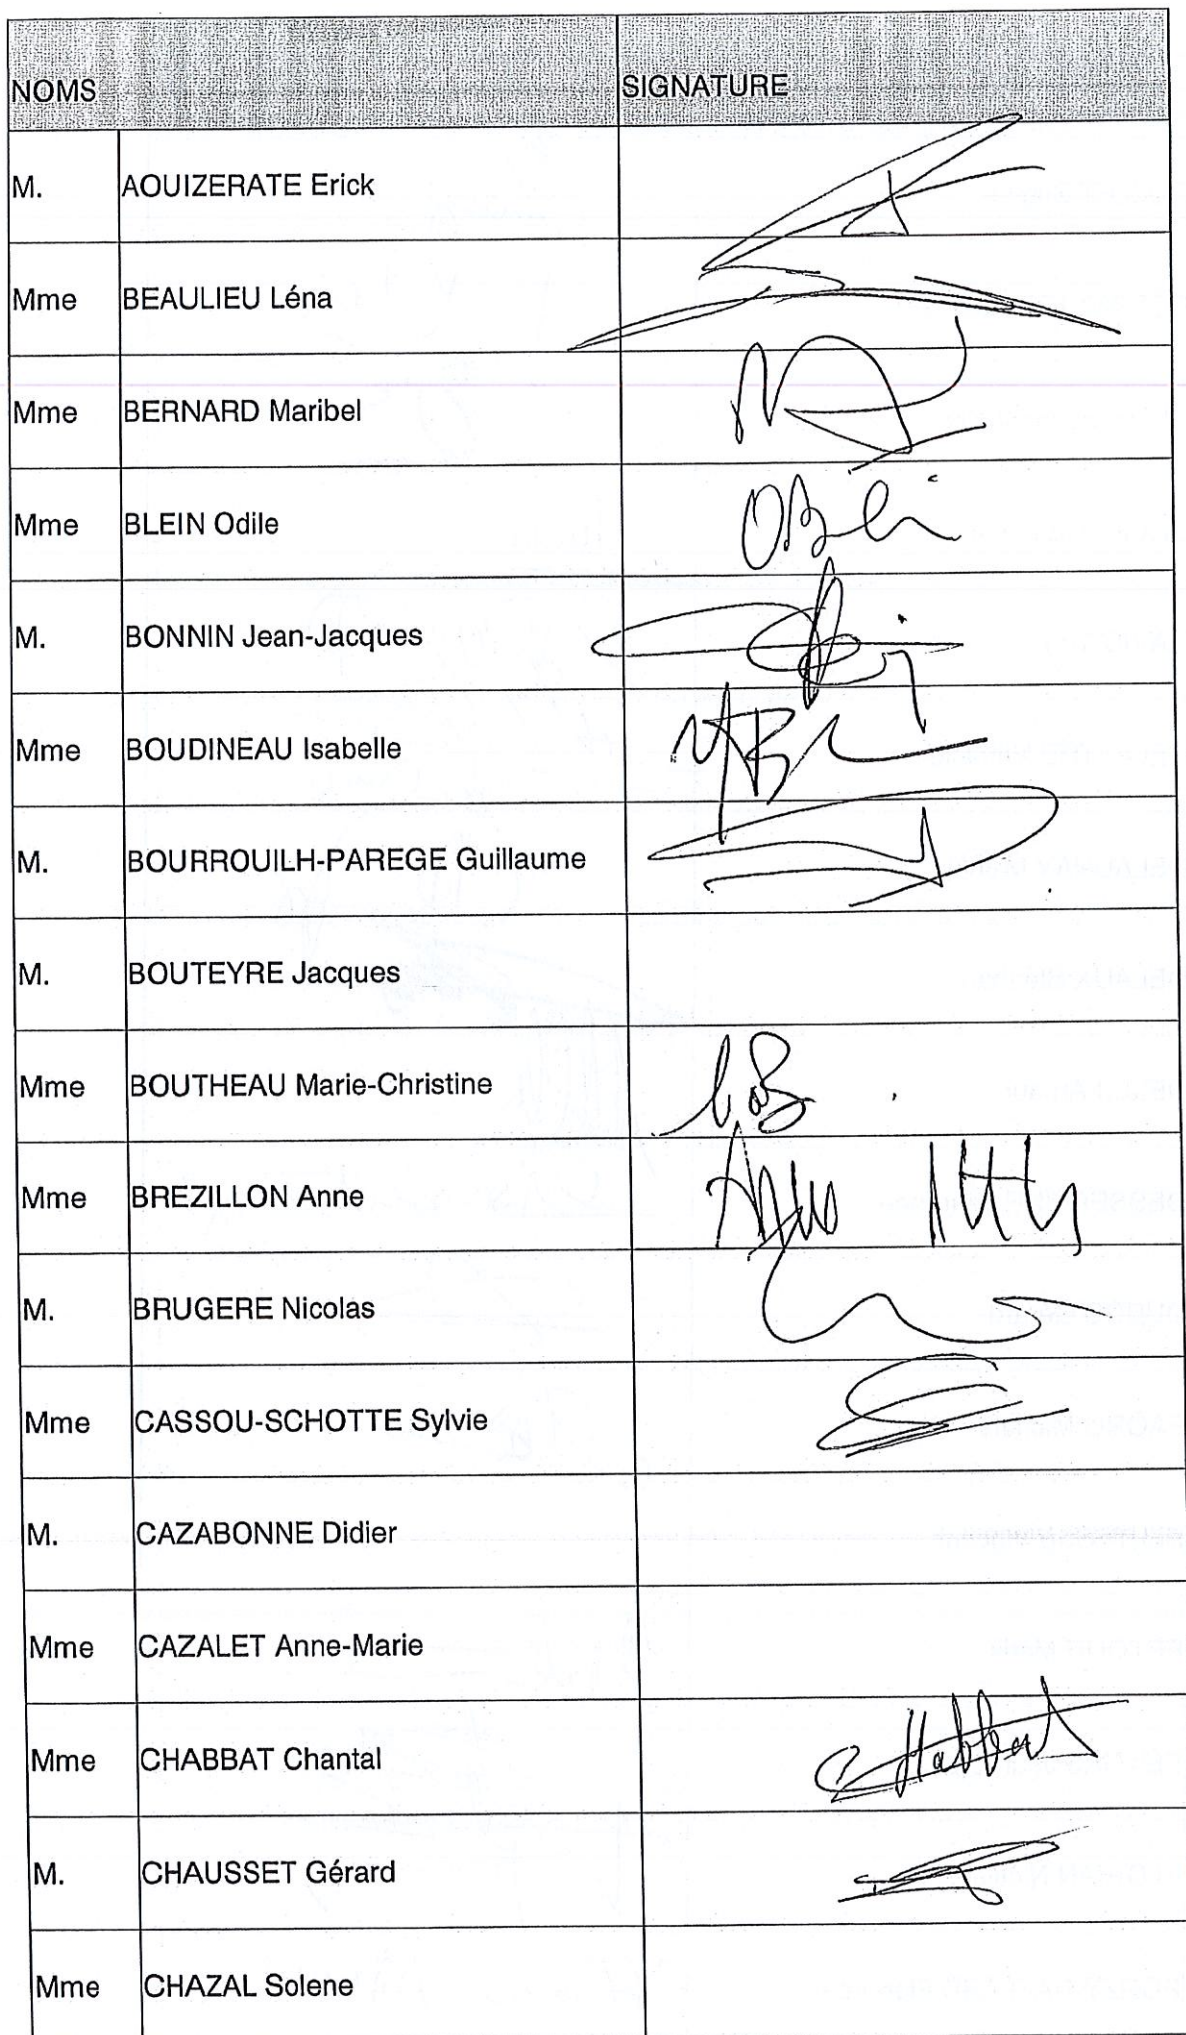 NOMS SIGNATURE
M. AOUIZERATE Erick
Mme BEAULIEU Léna
Mme BERNARD Maribel
Mme BLEIN Odile OBlei
M. BONNIN Jean-Jacques
Mme BOUDINEAU Isabelle
M. BOURROUILH-PAREGE Guillaume
M. BOUTEYRE Jacques
Mme BOUTHEAU Marie-Christine
Mme BREZILLON Anne
M. BRUGERE Nicolas
Mme CASSOU-SCHOTTE Sylvie
M. CAZABONNE Didier
Mme CAZALET Anne-Marie
Mme CHABBAT Chantal CHabbat
M. CHAUSSET Gérard
Mme CHAZAL Solene